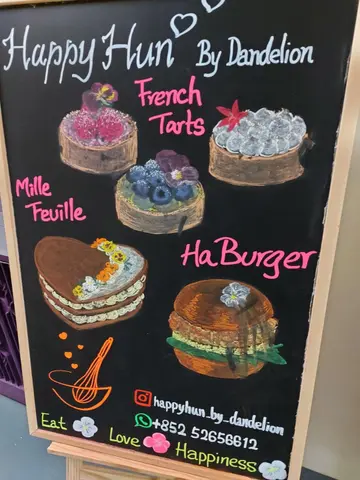 Happy Hun By Dandelion
French
Tarts
Mille
Feuille
HaBurger
happyhun_by_dandelion
+852 52656612
Eat
Love
Happiness